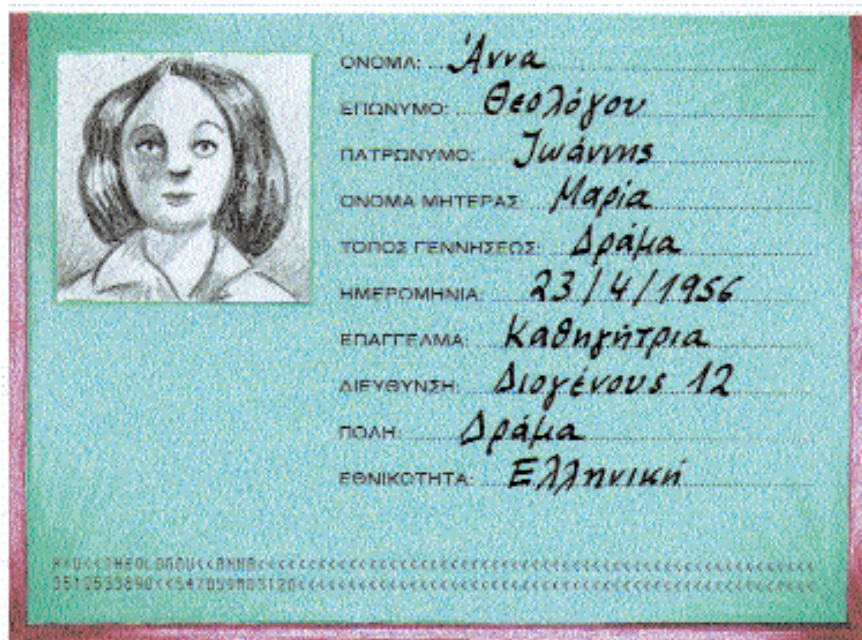 ΟΝΟΜΑ: Άννα
ΕΠΩΝΥΜΟ: Θεολόγου
ΠΑΤΡΩΝΥΜΟ: Ιωάννης
ΟΝΟΜΑ ΜΗΤΕΡΑΣ: Μαρία
ΤΟΠΟΣ ΓΕΝΝΗΣΕΩΣ: Δράμα
ΗΜΕΡΟΜΗΝΙΑ: 23/4/1956
ΕΠΑΓΓΕΛΜΑ: Καθηγήτρια
ΔΙΕΥΘΥΝΣΗ: Διογένους 12
ΠΟΛΗ: Δράμα
ΕΘΝΙΚΟΤΗΤΑ: Ελληνική